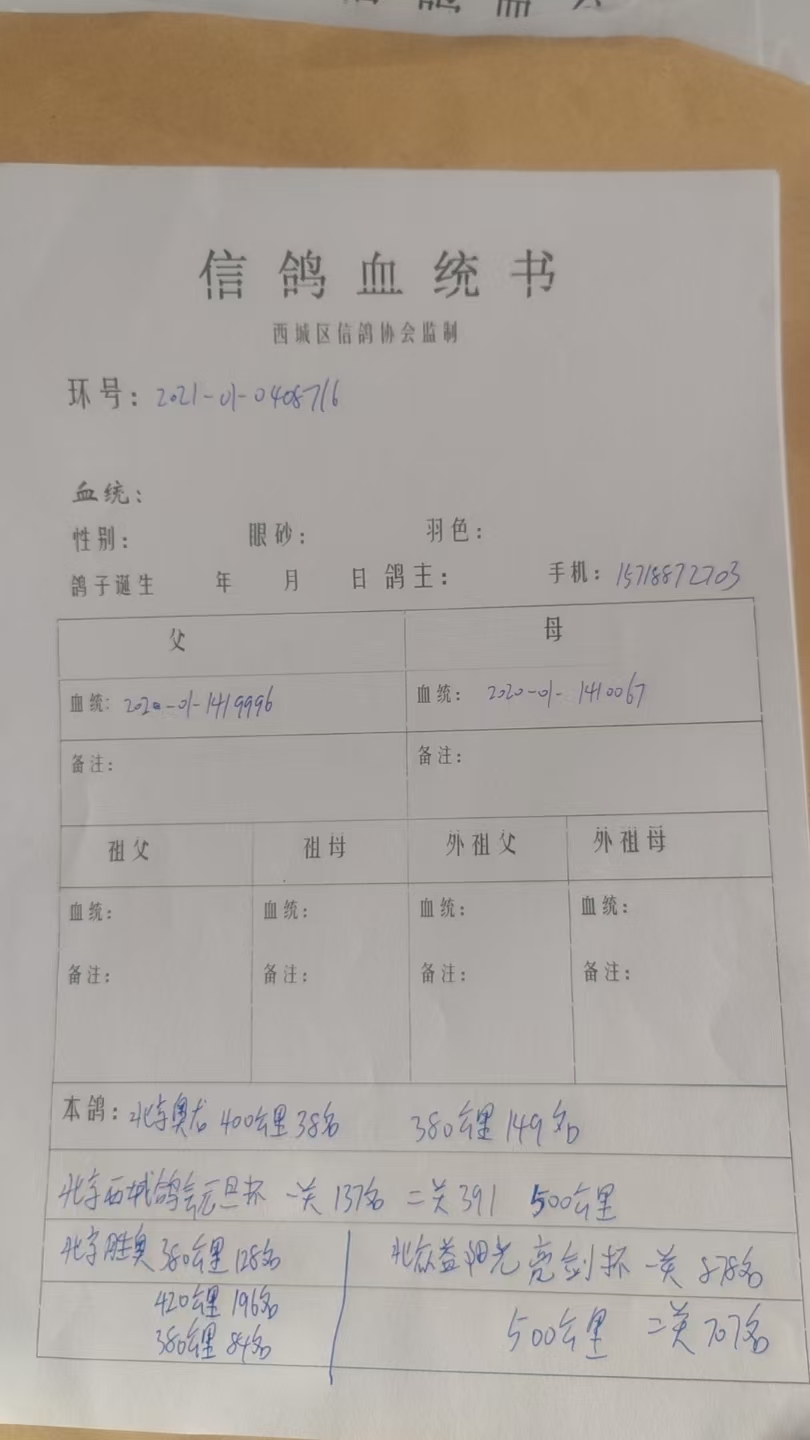 信鸽血统书
西城区信鸽协会监制
环号：2021-01-0408716
血统：
性别： 眼砂： 羽色：
鸽子诞生 年 月 日 鸽主： 手机：15718872703
父 母
血统：2020-01-1419996 血统：2020-01-1410067
备注： 备注：
祖父 祖母 外祖父 外祖母
血统： 血统： 血统： 血统：
备注： 备注： 备注： 备注：
本鸽：北京奥龙 400公里 38名 380公里 149名
北京西城鸽会元旦杯 一关 137名 二关 391 500公里
北京胜奥 380公里 128名 北众益阳光亮剑杯 一关 878名
420公里 196名
380公里 84名 500公里 二关 707名